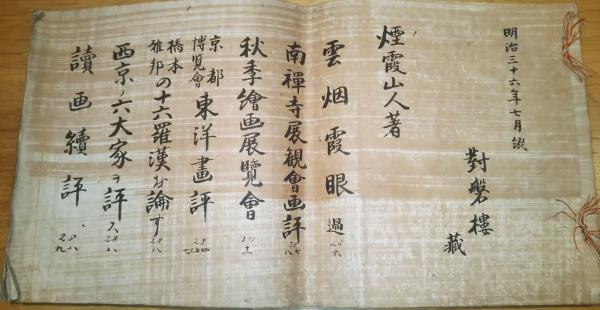 明治三十六年七月綴
對磐樓
藏
煙霞山人著
雲烟霞眼過
南禪寺展観會画評
秋季繪画展覧會
京都博覧會東洋畫評
橋本雅邦の十六羅漢を論す
西京ノ六大家ヲ評ス
讀画續評